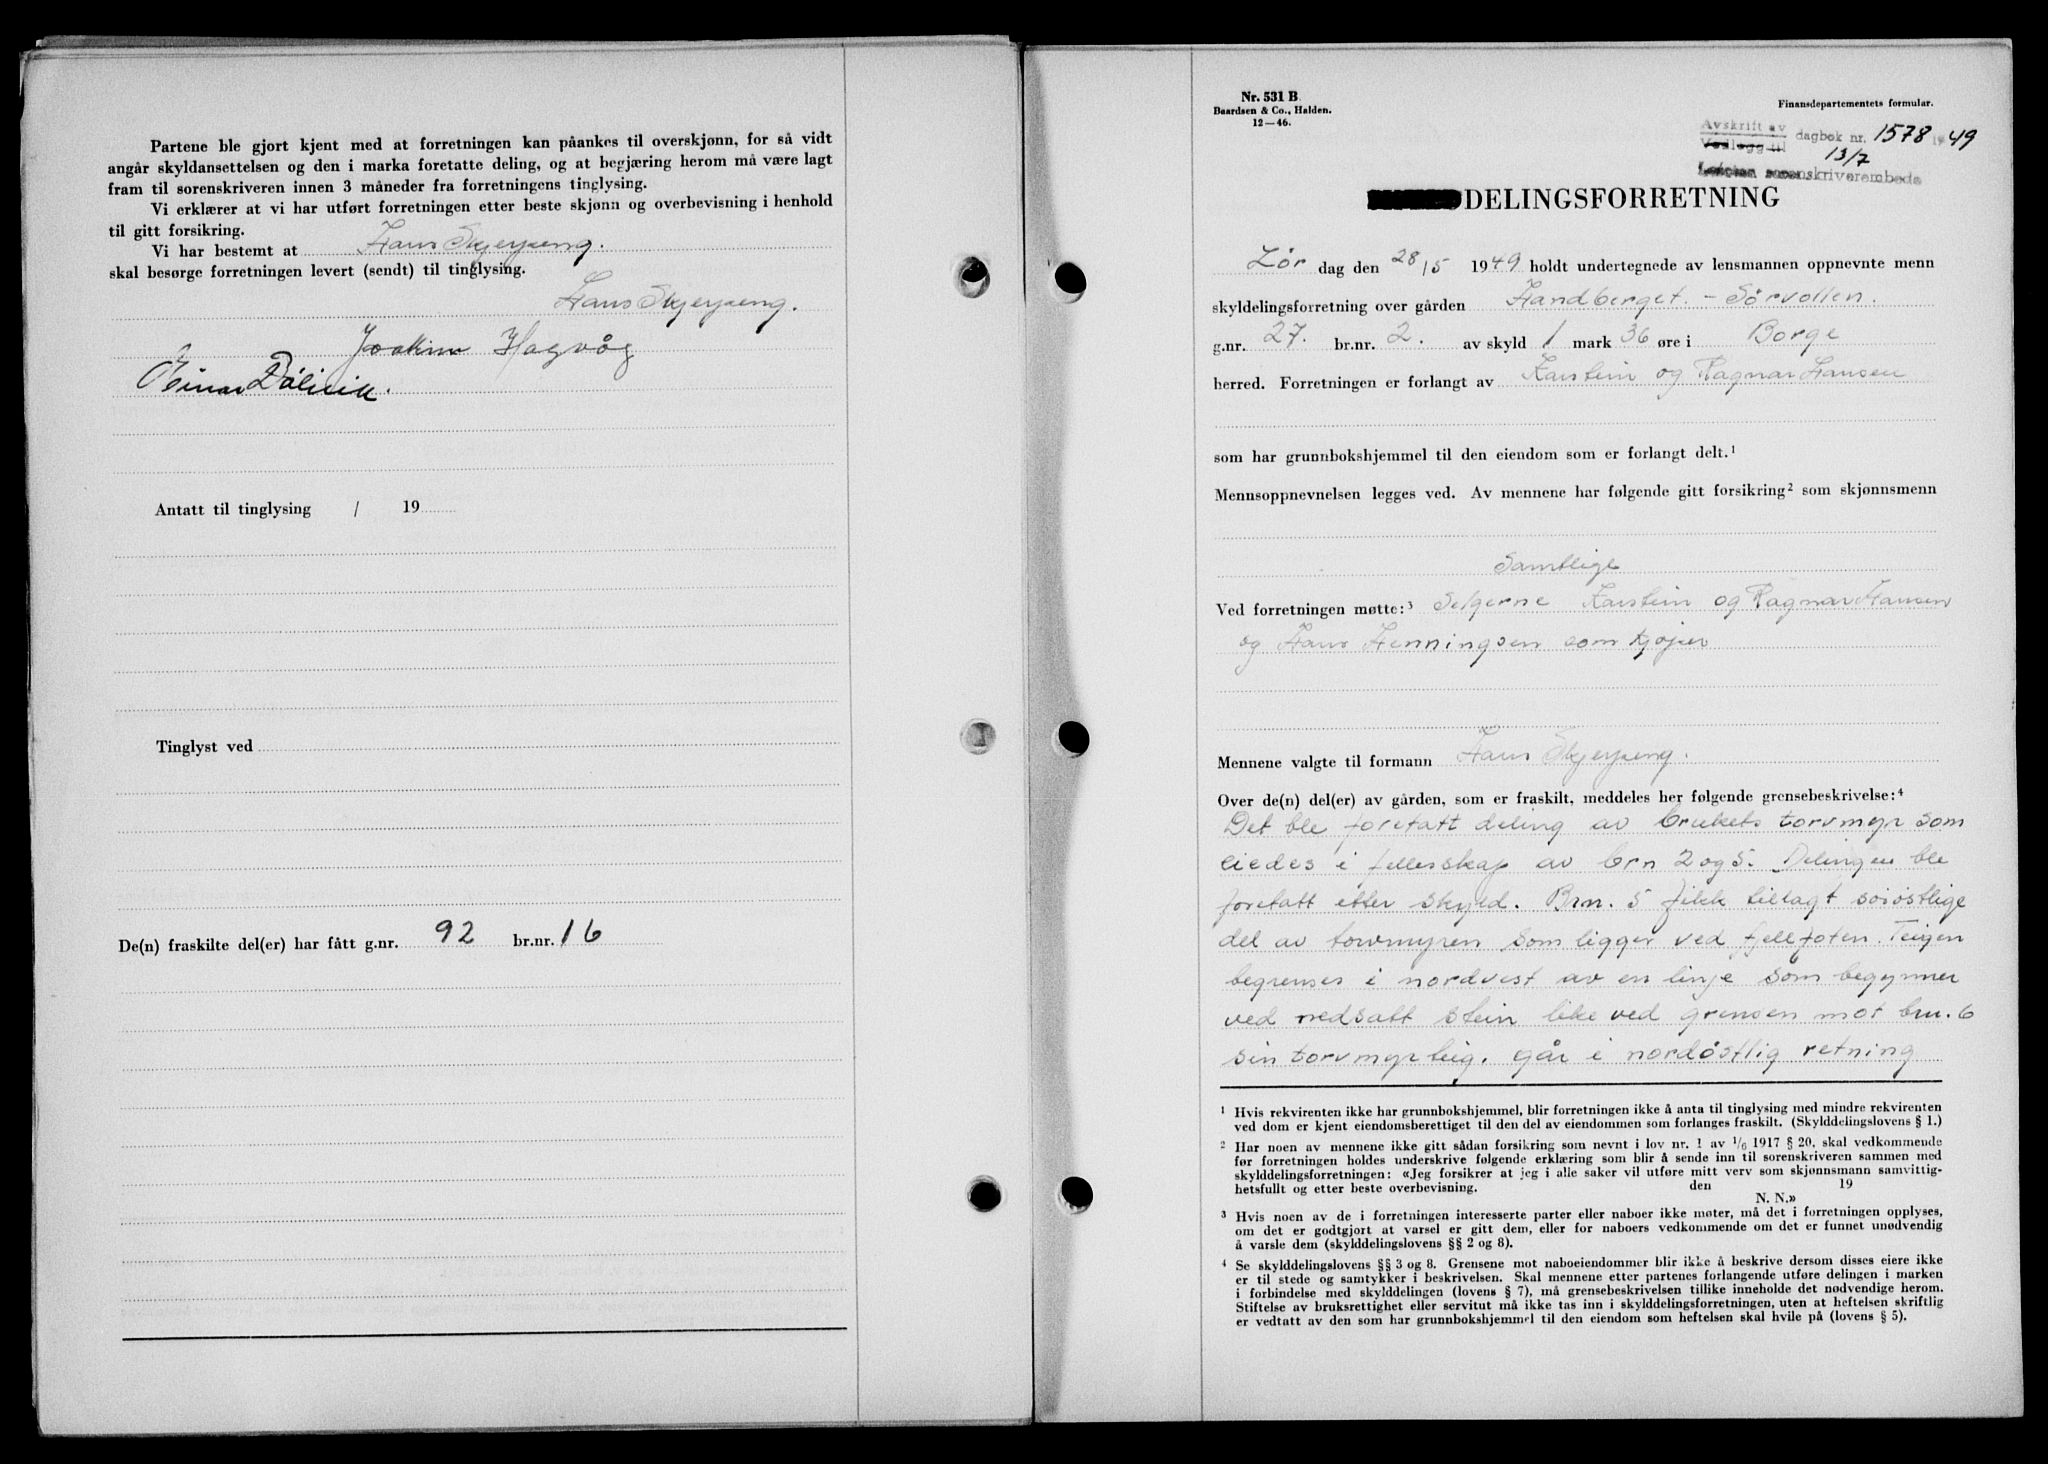 Partene ble gjort kjent med at forretningen kan påankes til overskjønn, for så vidt
angår skyldansettelsen og den i marka foretatte deling, og at begjæring herom må være lagt
fram til sorenskriveren innen 3 måneder fra forretningens tinglysing.
Vi erklærer at vi har utført forretningen etter beste skjønn og overbevisning i henhold
til gitt forsikring.
Vi har bestemt at Hans Skjerpeng.
skal besørge forretningen levert (sendt) til tinglysing.
Hans Skjerpeng.
Joakim Hagvåg
Einar Dølivik.
Antatt til tinglysing / 19
Tinglyst ved
De(n) fraskilte del(er) har fått g.nr. 92 br.nr. 16
Nr. 531 B
Baardsen & Co., Halden.
12—46.
Finansdepartementets formular.
Avskrift av
Vedlegg til dagbok nr. 1578 1949
13/7
Lofoten sorenskriverembede
DELINGSFORRETNING
Lør dag den 28/5 1949 holdt undertegnede av lensmannen oppnevnte menn
skyldelingsforretning over gården Handberget - Sørvollen.
g.nr. 27. br.nr. 2. av skyld 1 mark 36 øre i Borge
herred. Forretningen er forlangt av Karstein og Ragnar Hansen
som har grunnbokshjemmel til den eiendom som er forlangt delt.¹
Mennsoppnevnelsen legges ved. Av mennene har følgende gitt forsikring² som skjønnsmenn
Samtlige
Ved forretningen møtte:³ Selgerne Karstein og Ragnar Hansen
og Hans Henningsen som kjøper
Mennene valgte til formann Hans Skjerpeng.
Over de(n) del(er) av gården, som er fraskilt, meddeles her følgende grensebeskrivelse:⁴
Det ble foretatt deling av brukets torvmyr som
eiedes i fellesskap av brn 2 og 5. Delingen ble
foretatt etter skyld. Brn. 5 fikk tillagt søiøstlige
del av torvmyren som ligger ved fjellfoten. Teigen
begrenses i nordvest av en linje som begynner
ved nedsatt stein like ved grensen mot brn. 6
sin torvmyrteig. går i nordøstlig retning
¹ Hvis rekvirenten ikke har grunnbokshjemmel, blir forretningen ikke å anta til tinglysing med mindre rekvirenten
ved dom er kjent eiendomsberettiget til den del av eiendommen som forlanges fraskilt. (Skylddelingslovens § 1.)
² Har noen av mennene ikke gitt sådan forsikring som nevnt i lov nr. 1 av 1/6 1917 § 20, skal vedkommende
før forretningen holdes underskrive følgende erklæring som blir å sende inn til sorenskriveren sammen med
skylddelingsforretningen: «Jeg forsikrer at jeg i alle saker vil utføre mitt verv som skjønnsmann samvittig-
hetsfullt og etter beste overbevisning. den 19
N. N.»
³ Hvis noen av de i forretningen interesserte parter eller naboer ikke møter, må det i forretningen opplyses,
om det er godtgjort at varsel er gitt dem, eller for naboers vedkommende om det er funnet unødvendig
å varsle dem (skylddelingslovens §§ 2 og 8).
⁴ Se skylddelingslovens §§ 3 og 8. Grensene mot naboeiendommer blir ikke å beskrive dersom disses eiere ikke
er til stede og samtykker i beskrivelsen. Skal mennene etter partenes forlangende utføre delingen i marken
i forbindelse med skylddelingen (lovens § 7), må grensebeskrivelsen tillike inneholde det nødvendige herom.
Stiftelse av bruksrettighet eller servitut må ikke tas inn i skylddelingsforretningen, uten at heftelsen skriftlig
er vedtatt av den som har grunnbokshjemmel til den eiendom som heftelsen skal hvile på (lovens § 5).